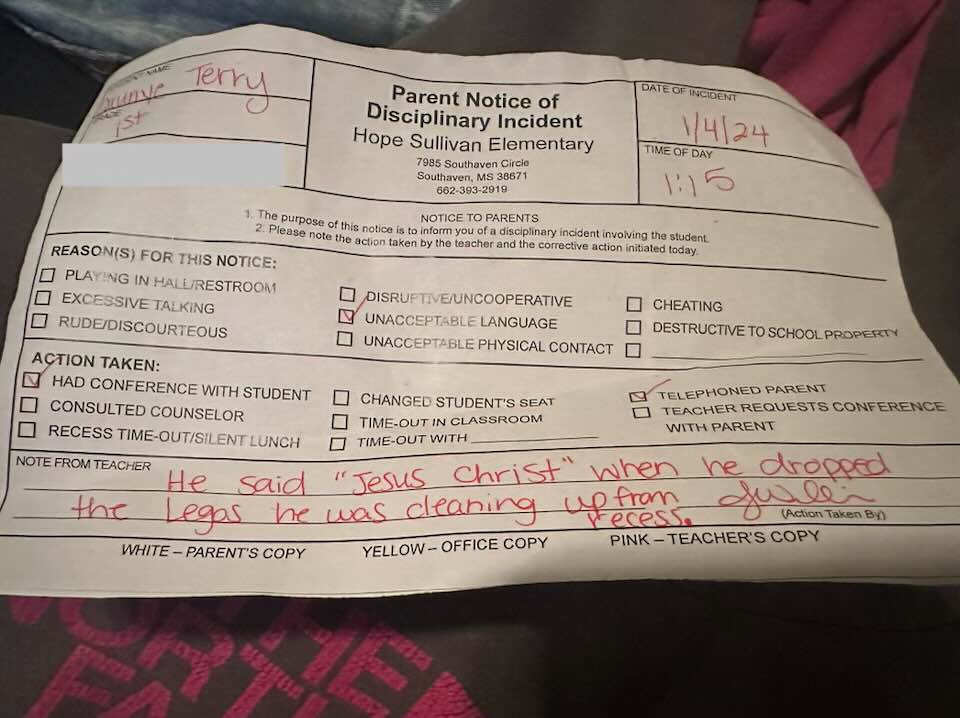 STUDENT NAME
Terry
GRADE
1st
Parent Notice of
Disciplinary Incident
Hope Sullivan Elementary
7985 Southaven Circle
Southaven, MS 38671
662-393-2919
DATE OF INCIDENT
1/4/24
TIME OF DAY
1:15
NOTICE TO PARENTS
1. The purpose of this notice is to inform you of a disciplinary incident involving the student.
2. Please note the action taken by the teacher and the corrective action initiated today.
REASON(S) FOR THIS NOTICE:
PLAYING IN HALL/RESTROOM
EXCESSIVE TALKING
RUDE/DISCOURTEOUS
DISRUPTIVE/UNCOOPERATIVE
UNACCEPTABLE LANGUAGE
UNACCEPTABLE PHYSICAL CONTACT
CHEATING
DESTRUCTIVE TO SCHOOL PROPERTY
ACTION TAKEN:
HAD CONFERENCE WITH STUDENT
CONSULTED COUNSELOR
RECESS TIME-OUT/SILENT LUNCH
CHANGED STUDENT'S SEAT
TIME-OUT IN CLASSROOM
TIME-OUT WITH
TELEPHONED PARENT
TEACHER REQUESTS CONFERENCE
WITH PARENT
NOTE FROM TEACHER
He said "Jesus Christ" when he dropped
the Legas he was cleaning up from
recess.
(Action Taken By)
WHITE – PARENT'S COPY YELLOW – OFFICE COPY PINK – TEACHER'S COPY
THE